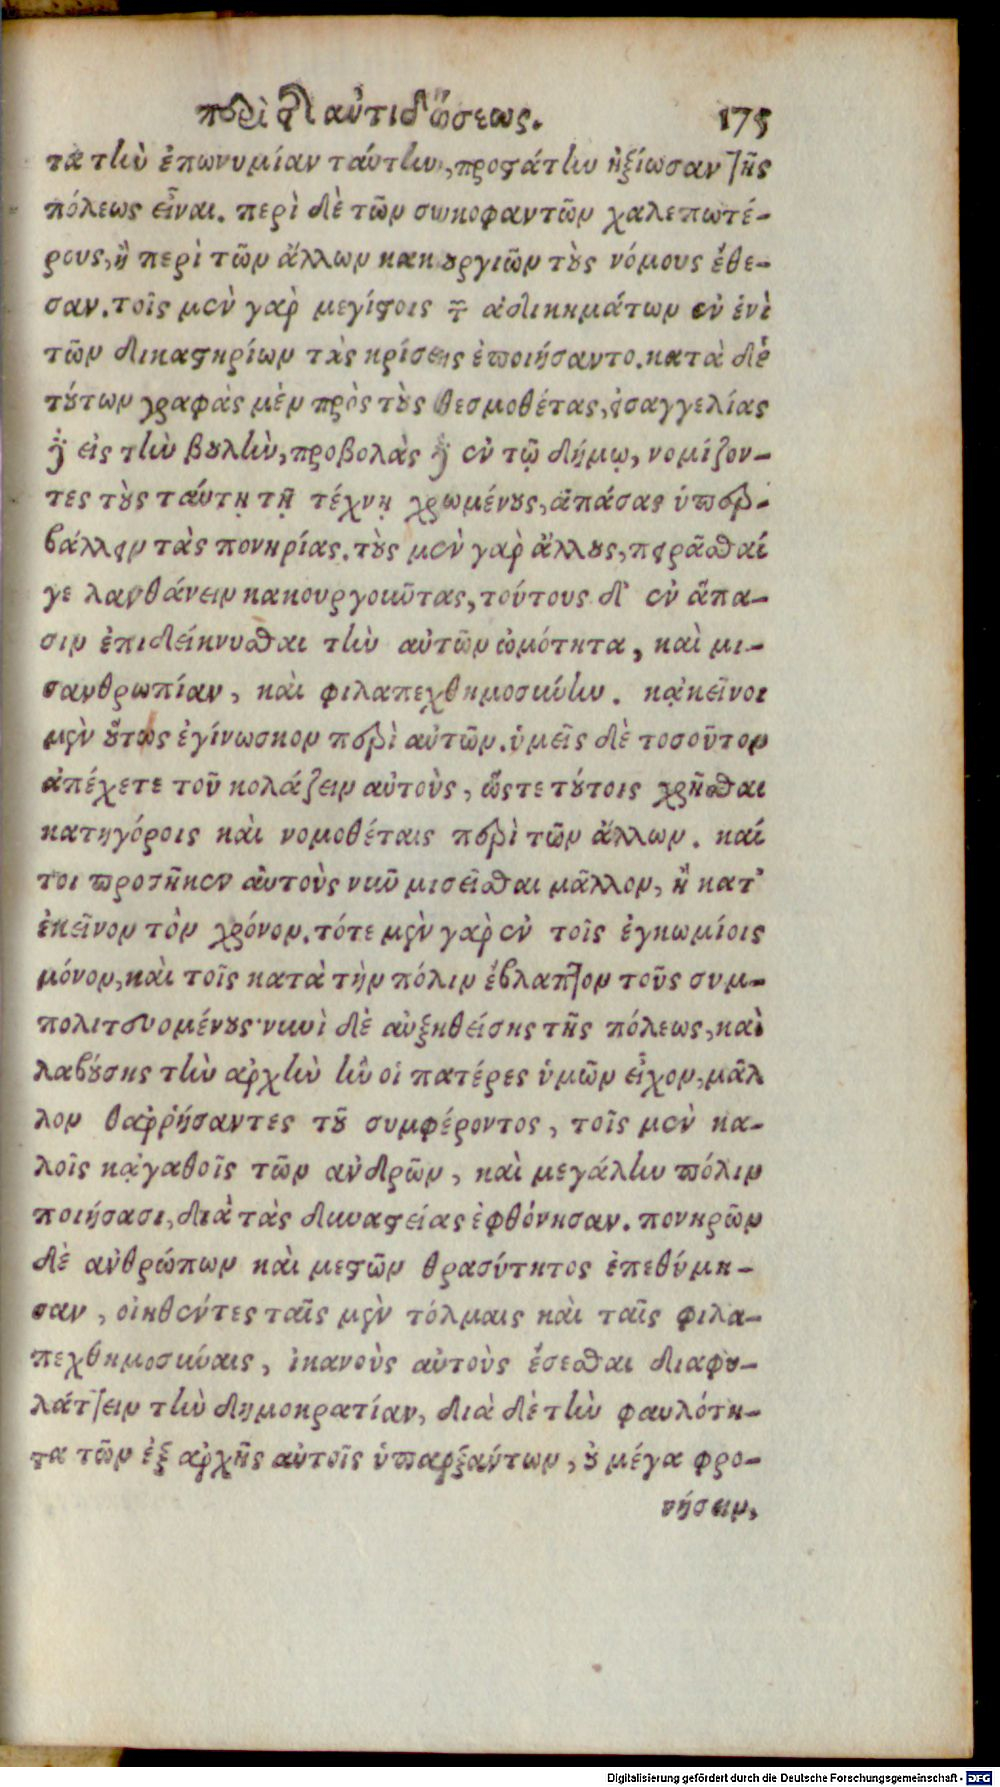 περὶ τῆς ἀντιδόσεως. 175
τα τὴν ἐπωνυμίαν ταύτην, προστάτην ἠξίωσαν τῆς
πόλεως εἶναι. περὶ δὲ τῶν συκοφαντῶν χαλεπωτέ-
ρους, ἢ περὶ τῶν ἄλλων κακουργιῶν τοὺς νόμους ἔθε-
σαν. τοῖς μὲν γὰρ μεγίστοις τῶν ἀδικημάτων ἐν ἑνὶ
τῶν δικαστηρίων τὰς κρίσεις ἐποιήσαντο. κατὰ δὲ
τούτων γραφὰς μὲν πρὸς τοὺς θεσμοθέτας, εἰσαγγελίας
δὲ εἰς τὴν βουλὴν, προβολὰς δὲ ἐν τῷ δήμῳ, νομίζον-
τες τοὺς ταύτῃ τῇ τέχνῃ χρωμένους, ἁπάσας ὑπερ-
βάλλειν τὰς πονηρίας. τοὺς μὲν γὰρ ἄλλους, πειρᾶσθαί
γε λανθάνειν κακουργοῦντας, τούτους δ' ἐν ἅπα-
σιν ἐπιδείκνυσθαι τὴν αὐτῶν ὠμότητα, καὶ μι-
σανθρωπίαν, καὶ φιλαπεχθημοσύνην. κᾀκεῖνοι
μὲν οὕτως ἐγίνωσκον περὶ αὐτῶν. ὑμεῖς δὲ τοσοῦτον
ἀπέχετε τοῦ κολάζειν αὐτοὺς, ὥστε τούτοις χρῆσθαι
κατηγόροις καὶ νομοθέταις περὶ τῶν ἄλλων. καί
τοι προσῆκεν αὐτοὺς νῦν μισεῖσθαι μᾶλλον, ἢ κατ'
ἐκεῖνον τὸν χρόνον. τότε μὲν γὰρ ἐν τοῖς ἐγκωμίοις
μόνον, καὶ τοῖς κατὰ τὴν πόλιν ἔβλαπτον τοὺς συμ-
πολιτευομένους· νυνὶ δὲ αὐξηθείσης τῆς πόλεως, καὶ
λαβούσης τὴν ἀρχὴν ἣν οἱ πατέρες ὑμῶν εἶχον, μᾶλ
λον θαῤῥήσαντες τοῦ συμφέροντος, τοῖς μὲν κα-
λοῖς κᾀγαθοῖς τῶν ἀνδρῶν, καὶ μεγάλην πόλιν
ποιήσασι, διὰ τὰς δυναστείας ἐφθόνησαν. πονηρῶν
δὲ ἀνθρώπων καὶ μεστῶν θρασύτητος ἐπεθύμη-
σαν, οἰηθέντες ταῖς μὲν τόλμαις καὶ ταῖς φιλα-
πεχθημοσύναις, ἱκανοὺς αὐτοὺς ἔσεσθαι διαφυ-
λάττειν τὴν δημοκρατίαν, διὰ δὲ τὴν φαυλότη-
τα τῶν ἐξ ἀρχῆς αὐτοῖς ὑπαρξάντων, οὐ μέγα φρο-
νήσειν,
Digitalisierung gefördert durch die Deutsche Forschungsgemeinschaft - DFG